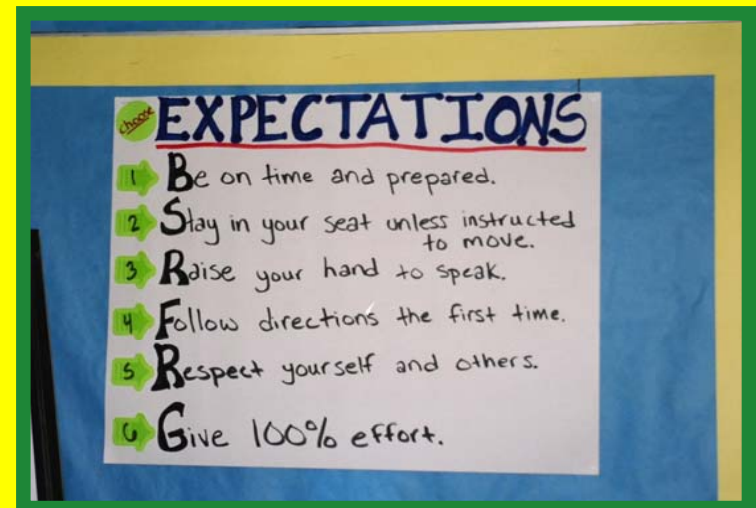 choose EXPECTATIONS
1 Be on time and prepared.
2 Stay in your seat unless instructed
to move.
3 Raise your hand to speak.
4 Follow directions the first time.
5 Respect yourself and others.
6 Give 100% effort.